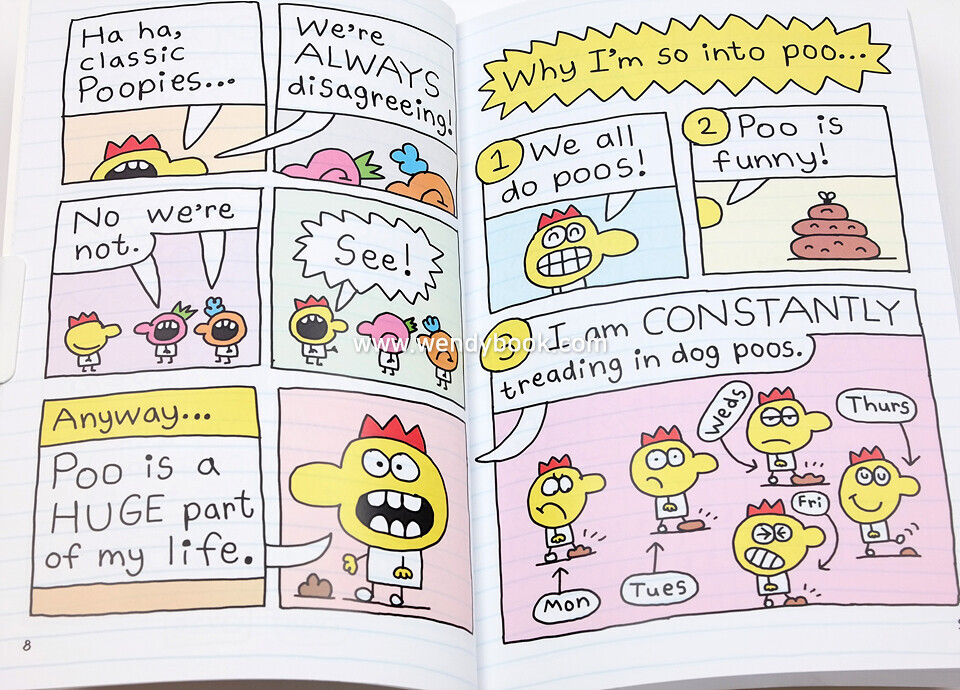 Ha ha,
classic
Poopies...
We're
ALWAYS
disagreeing!
No we're
not.
See!
Anyway...
Poo is a
HUGE part
of my life.
8
Why I'm so into poo...
1 We all
do poos!
2 Poo is
funny!
3 I am CONSTANTLY
treading in dog poos.
Mon
Tues
Weds
Thurs
Fri
www.wendybook.com